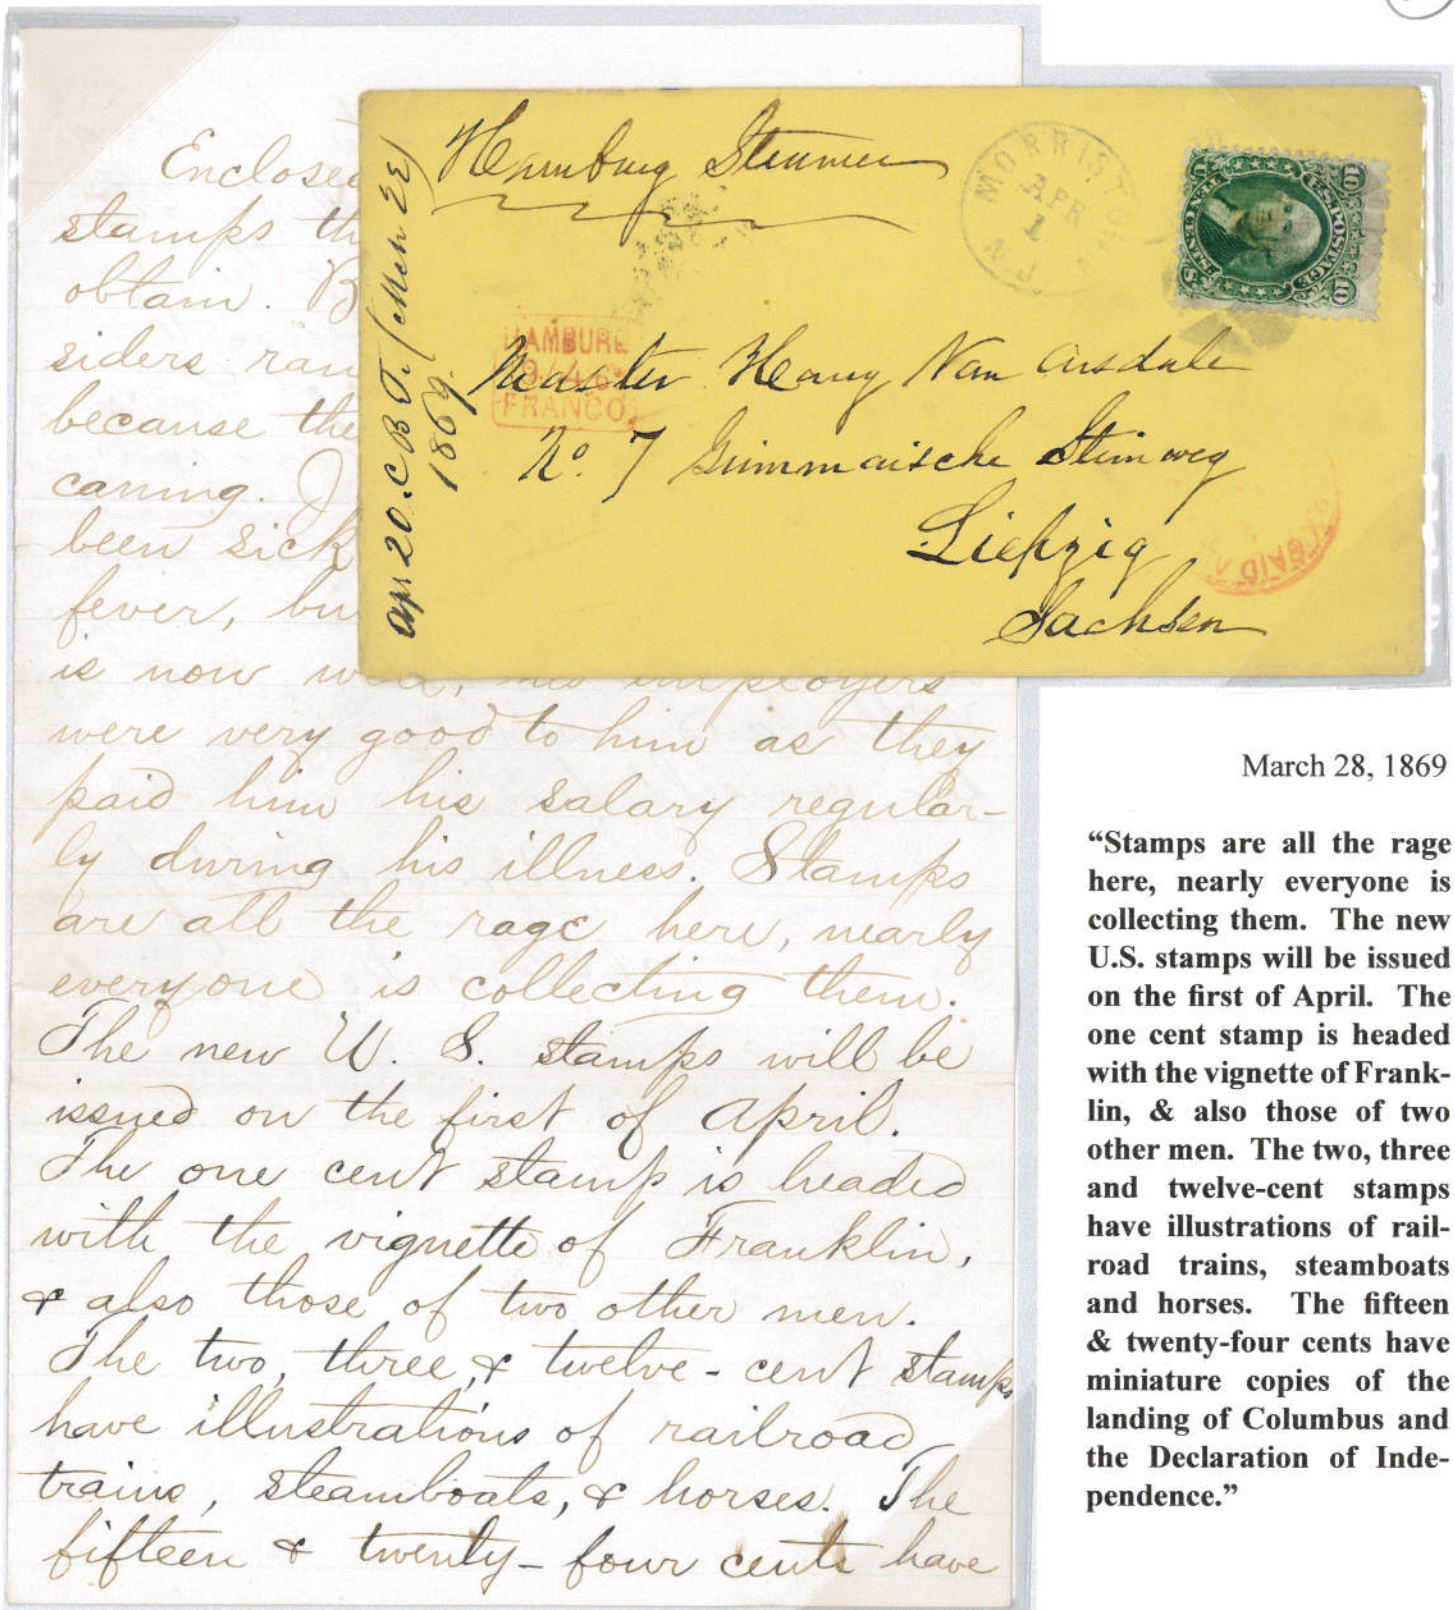 Enclosed
stamps th
obtain. B
siders ran
because the
caning. I
been sick
fever, bu
is now well, his employers
were very good to him as they
paid him his salary regular-
ly during his illness. Stamps
are all the rage here, nearly
everyone is collecting them.
The new U. S. stamps will be
issued on the first of April.
The one cent stamp is headed
with the vignette of Franklin,
& also those of two other men.
The two, three, & twelve-cent stamps
have illustrations of railroad
trains, steamboats, & horses. The
fifteen & twenty-four cents have
Hamburg Steamer
MORRISTO
APR
1
N.J.
U.S. POSTAGE
TEN CENTS
10 10
U S
HAMBURG
FRANCO.
Master Harry Van Arsdale
No. 7 Grimmaische Steinweg
Liepzig
Sachsen
PAID
Apr 20. C B T.
1869.
March 28, 1869
“Stamps are all the rage
here, nearly everyone is
collecting them. The new
U.S. stamps will be issued
on the first of April. The
one cent stamp is headed
with the vignette of Frank-
lin, & also those of two
other men. The two, three
and twelve-cent stamps
have illustrations of rail-
road trains, steamboats
and horses. The fifteen
& twenty-four cents have
miniature copies of the
landing of Columbus and
the Declaration of Inde-
pendence.”